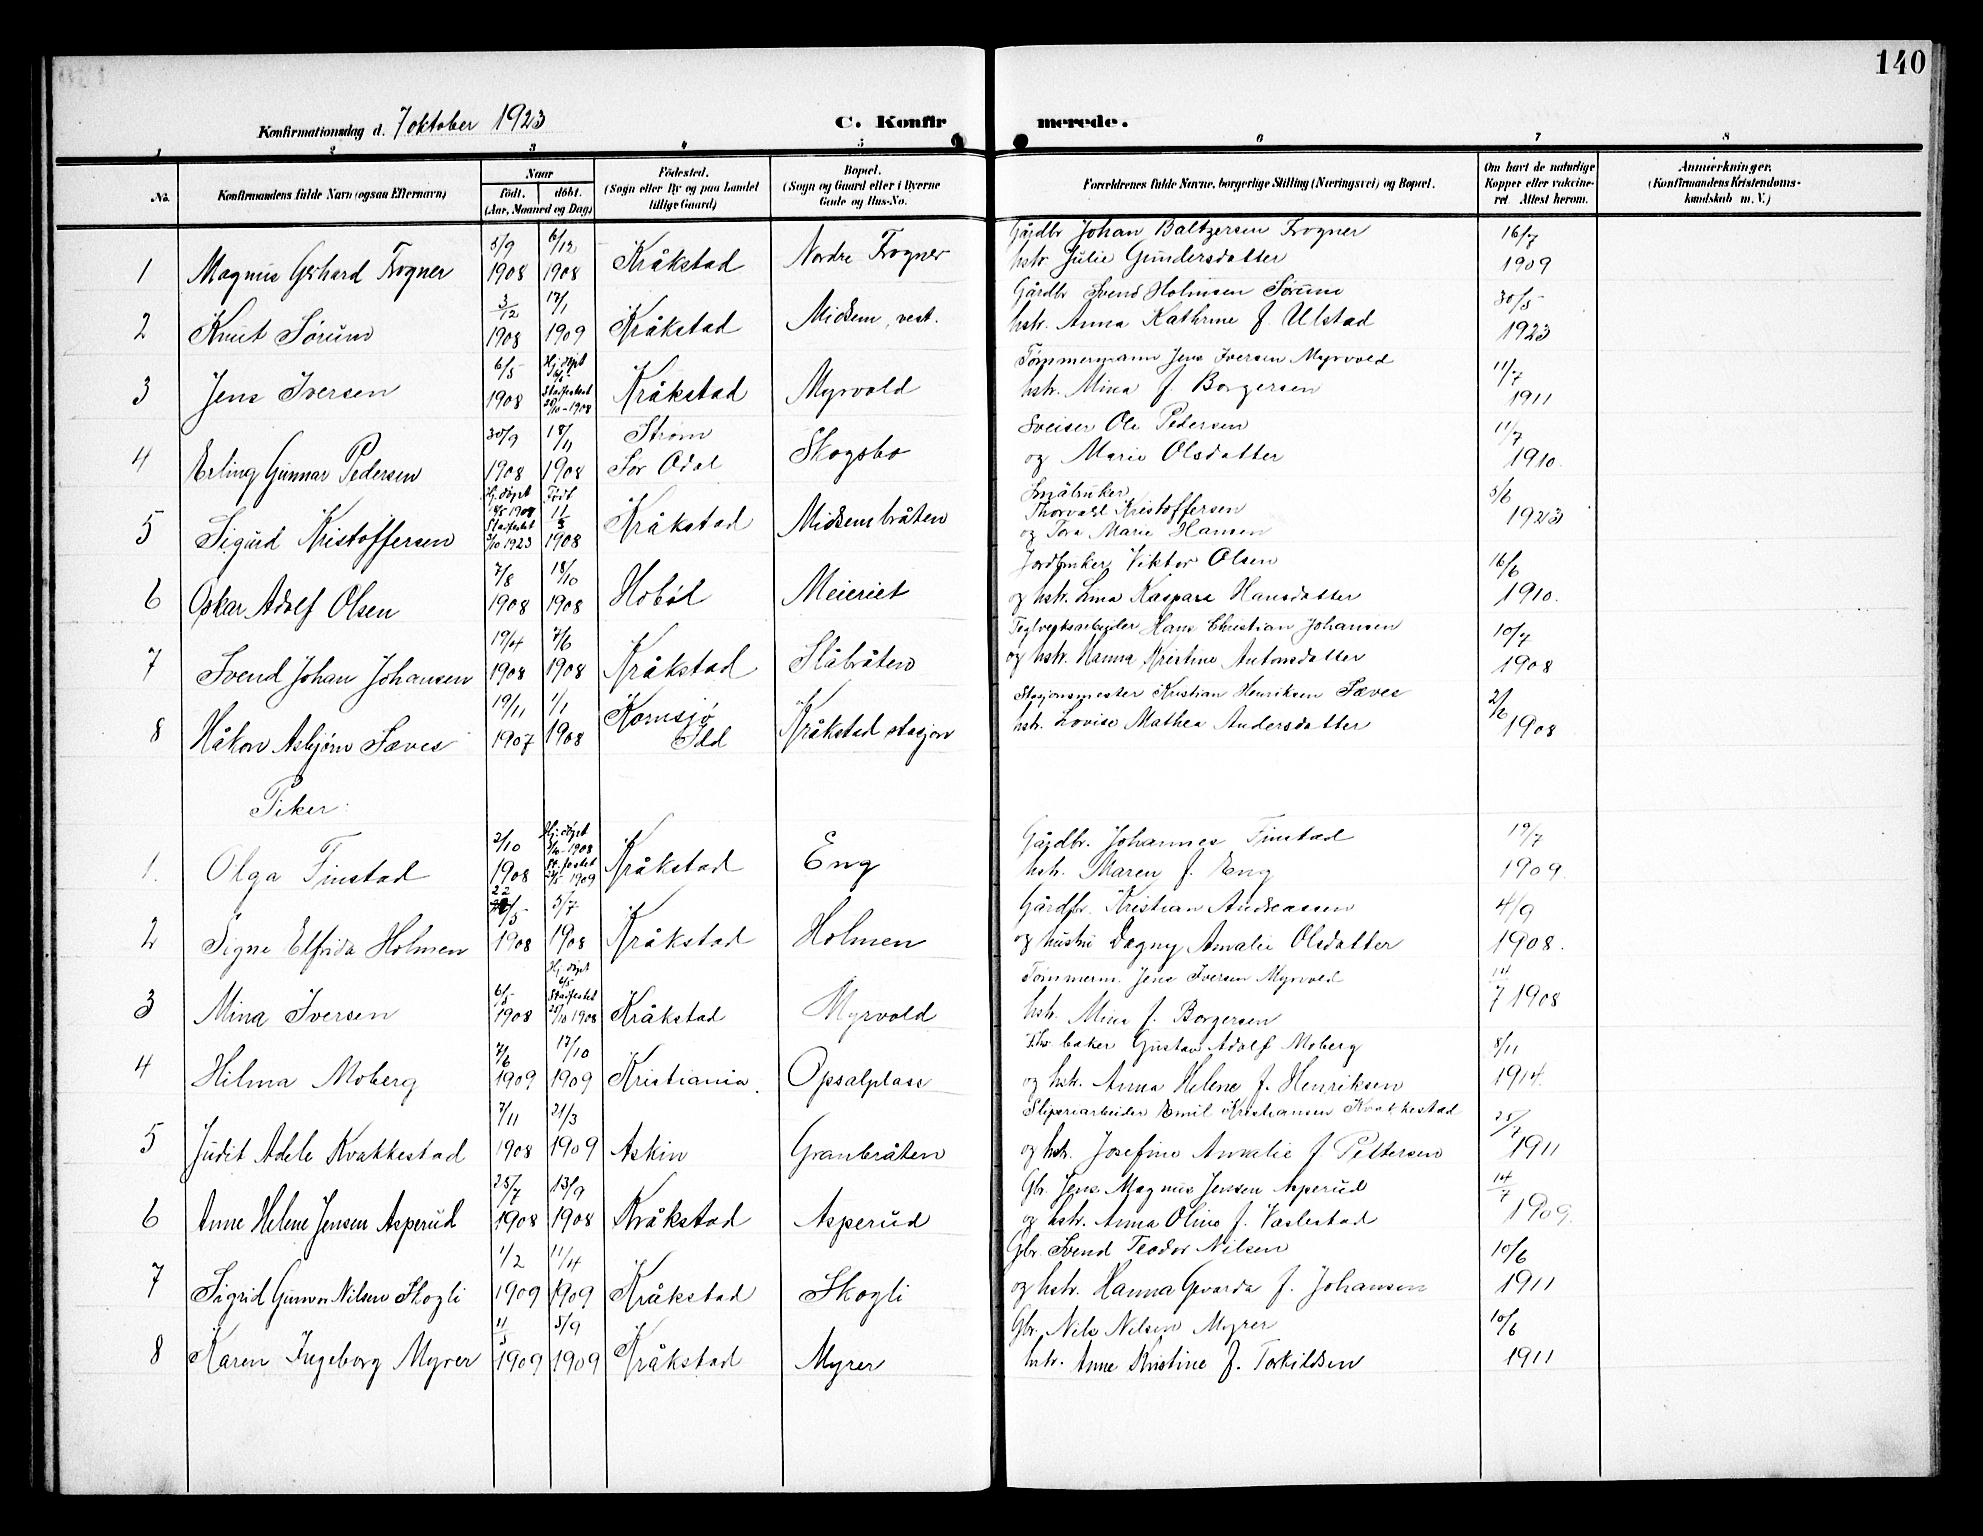 140
Konfirmationsdag d. 7 oktober 1923 C. Konfir merede.
1 2 3 4 5 6 7 8
No. Konfirmandens fulde Navn (ogsaa Efternavn) Naar født. døbt. (Aar, Maaned og Dag) Fødested. (Sogn eller By og paa Landet tillige Gaard) Bopæl. (Sogn og Gaard eller i Byerne Gade og Hus-No. Forældrenes fulde Navne, borgerlige Stilling (Næringsvei) og Bopæl. Om havt de naturlige Kopper eller vaccineret. Attest herom. Anmerkninger. (Konfirmandens Kristendomskundskab m. V.)
1 Magnus Gerhard Frogner 5/9 1908 6/12 1908 Kråkstad Nordre Frogner Gårdbr Johan Baltzersen Frogner 16/7
hstr. Julie Gundersdatter 1909
2 Knut Sørum 3/12 1908 17/1 1909 Kråkstad Midsem, vest. Gårdbr Svend Holmsen Sørum 30/5
hstr. Anna Kathrine f. Ulstad 1923
3 Jens Iversen 6/5 1908 Hj. døpt 6/5 Stadfestet 25/10-1908 Kråkstad Myrvold Tømmermann Jens Iversen Myrvold 11/7
hstr. Mina f. Borgersen 1911
4 Erling Gunnar Pedersen 30/9 1908 18/11 1908 Strøm Sør Odal Skogsbo Sveiser Ole Pedersen 11/7
og Marie Olsdatter 1910.
5 Sigurd Kristoffersen Hj. døpt 1908 Stadfestet 1923 Født 11/3 1908 Kråkstad Midsembråten Småbruker 5/6
Thorvald Kristoffersen 1923
og Tora Marie Hansen
6 Oskar Adolf Olsen 7/8 1908 18/10 1908 Hobøl Meieriet Jordbruker Viktor Olsen 16/6
og hstr. Lina Kaspara Hansdatter 1910.
7 Svend Johan Johansen 19/4 1908 7/6 1908 Kråkstad Slåbråten Teglverksarbeider Hans Christian Johansen 10/7
og hstr. Hanna Kristine Antonsdatter 1908
8 Håkon Asbjørn Sæves 19/11 1907 1/1 1908 Kornsjø Idd Kråkstad stasjon Stasjonsmester Kristian Henriksen Sæves 2/6
hstr. Lovise Mathea Andersdatter 1908
Piker:
1. Olga Finstad 2/10 1908 Hj. døpt 1908 St. festet 1909 Kråkstad Eng Gårdbr. Johannes Finstad 19/7
hstr. Maren f. Eng 1909.
2 Signe Elfrida Holmen 22/5 1908 5/7 1908 Kråkstad Holmen Gårdbr. Kristian Andreassen 4/9
og hustru Dagny Amalie Olsdatter 1908.
3 Mina Iversen 6/5 1908 Hj. døpt 6/5 Stadfestet 25/10 1908 Kråkstad Myrvold Tømmerm. Jens Iversen Myrvold
hstr. Mina f. Borgersen 7 1908
4 Hilma Moberg 7/6 1909 17/10 1909 Kristiania. Opsalplass baker Gustav Adolf Moberg 8/11
og hstr. Anna Helene f. Henriksen 1914.
5 Judit Adele Kvakkestad 7/11 1908 21/3 1909 Askim Granbråten Sliperiarbeider Emil Kristiansen Kvakkestad 25/7
og hstr. Josefine Amalie f. Pettersen 1911
6 Anne Helene Jensen Asperud 25/7 1908 13/9 1908 Kråkstad Asperud Gbr. Jens Magnus Jensen Asperud 14/7
og hstr. Anna Oline f. Vaslestad 1909.
7 Sigrid Gunvor Nilsen Skogli 1/2 1909 11/4 1909 Kråkstad Skogli Gbr. Svend Teodor Nilsen 10/6
og hstr. Hanna Gevarda f. Johansen 1911
8 Karen Ingeborg Myrer 11/5 1909 5/9 1909 Kråkstad Myrer Gbr. Nils Nilsen Myrer 10/6
hstr. Anne Kristine f. Torkildsen 1911